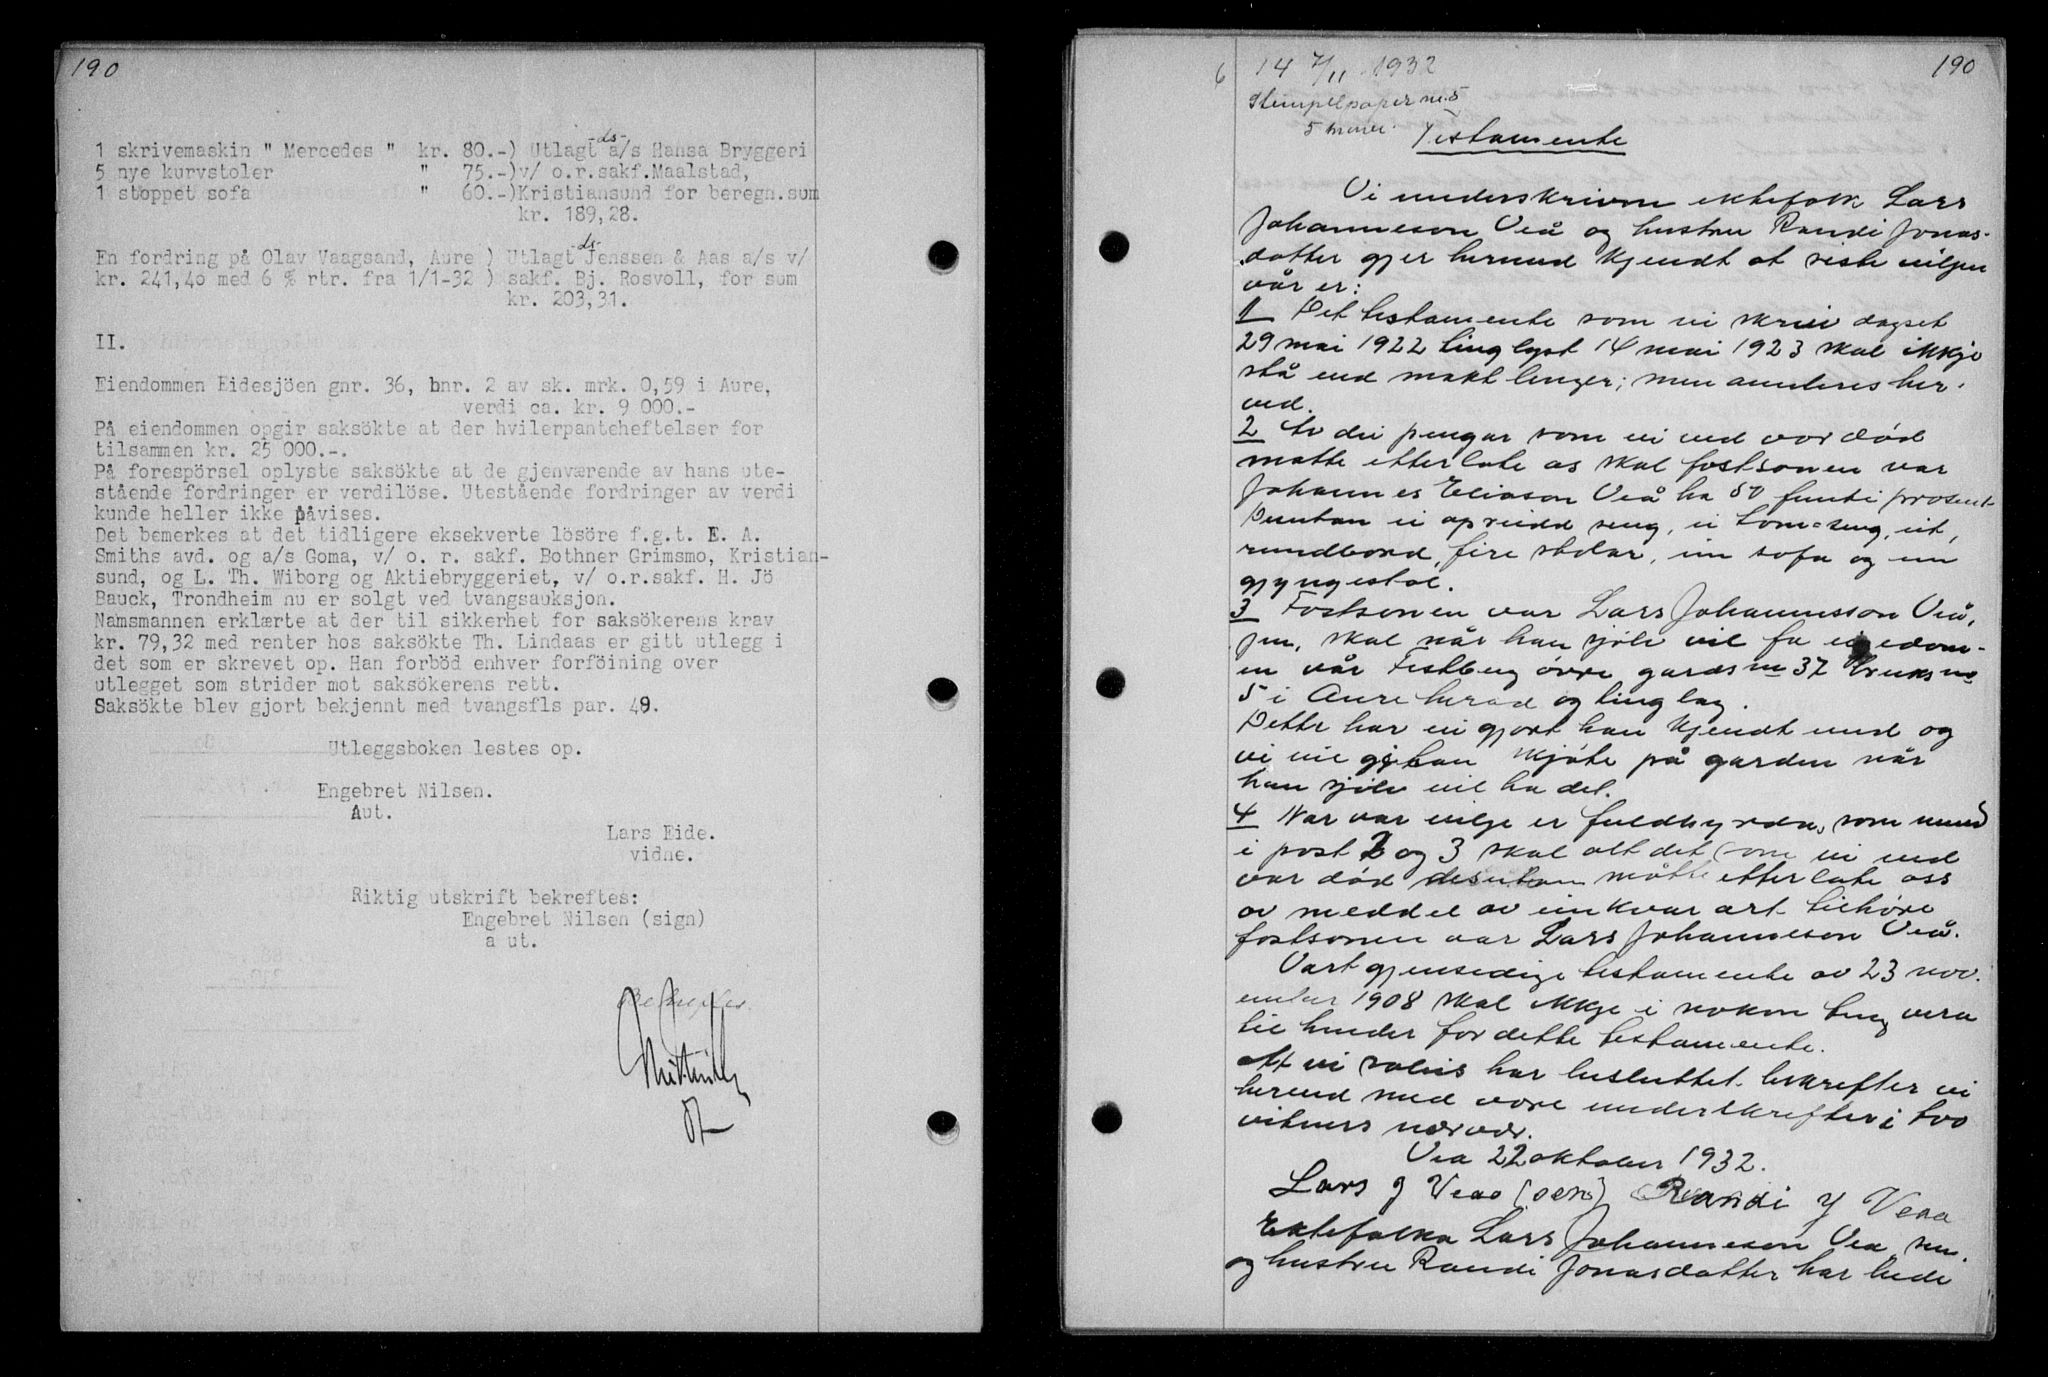 190
1 skrivemaskin " Mercedes " kr. 80.-) Utlagt -ds- a/s Hansa Bryggeri
5 nye kurvstoler " 75.-)v/ o.r.sakf.Maalstad,
1 stoppet sofa " 60.-)Kristiansund for beregn.sum
kr. 189,28.
En fordring på Olav Vaagsand, Aure ) Utlagt -ds- Jenssen & Aas a/s v/
kr. 241,40 med 6 % rtr. fra 1/1-32 ) sakf. Bj. Rosvoll, for sum
kr. 203,31.
II.
Eiendommen Eidesjöen gnr. 36, bnr. 2 av sk. mrk. 0,59 i Aure,
verdi ca. kr. 9 000.-
På eiendommen opgir saksökte at der hvilerpanteheftelser for
tilsammen kr. 25 000.-.
På forespörsel oplyste saksökte at de gjenværende av hans ute-
stående fordringer er verdilöse. Utestående fordringer av verdi
kunde heller ikke påvises.
Det bemerkes at det tidligere eksekverte lösöre f.g.t. E. A.
Smiths avd. og a/s Goma, v/ o. r. sakf. Bothner Grimsmo, Kristian-
sund, og L. Th. Wiborg og Aktiebryggeriet, v/ o.r.sakf. H. Jö
Bauck, Trondheim nu er solgt ved tvangsauksjon.
Namsmannen erklærte at der til sikkerhet for saksökerens krav
kr. 79,32 med renter hos saksökte Th. Lindaas er gitt utlegg i
det som er skrevet op. Han forböd enhver forföining over
utlegget som strider mot saksökerens rett.
Saksökte blev gjort bekjennt med tvangsfls par. 49.
Utleggsboken lestes op.
Engebret Nilsen.
Aut.
Lars Eide.
vidne.
Riktig utskrift bekreftes:
Engebret Nilsen (sign)
a ut.
190
6 14 7/11 1932
Stempelpaper nr. 5
5 kroner.
Testamente
Vi underskrivne ektefolk Lars
Johanneson Veå og hustru Randi Jonas-
datter gjer hermed kjendt at siste viljen
vår er:
1 Det testamente som vi skrev dagset
29 mai 1922 tinglyst 14 mai 1923 skal ikkje
stå ved makt lenger; men annuleres her-
ved.
2 Av dei pengar som vi ved vor død
måtte etterlate os skal fostsonen vår
Johannes Eliason Veå ha 50 femti prosent
Desutan ei opreidd seng, ei tom seng, eit
rundbord, fire stolar, ein sofa og ein
gjyngestol.
3 Fostsonen vår Lars Johannesson Veå,
jun. skal når han sjølv vil få eiedom-
en vår Festberg øvre gards nr 37 bruks nr
5 i Aure herad og tinglag.
Dette har vi gjort han kjendt med og
vi vil gi han skjøte på garden når
han sjølv vil ha det.
4 Når vår vilje er fuldbyrda, som nemnd
i post 2 og 3 skal alt det som vi ved
vår død desutan måtte etterlate oss
av meddel av einkvar art tilhøre
fostsonen vår Lars Johanneson Veå.
Vårt gjensedige testamente av 23 nov-
ember 1908 skal ikkje i nokon ting vera
til hinder for dette testamente.
At vi soleis har besluttet bekrefter vi
herved med vore underskrifter i tvo
vitners nærvær.
Vea 22 oktober 1932.
Lars J Veao (sen) Randi J Veaa
Ektefolka Lars Johanneson Vea sen.
og hustru Randi Jonasdatter har bede